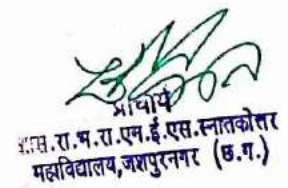 प्राचार्य
शास.रा.भ.रा.एन.ई.एस.स्नातकोत्तर
महाविद्यालय,जशपुरनगर (छ.ग.)